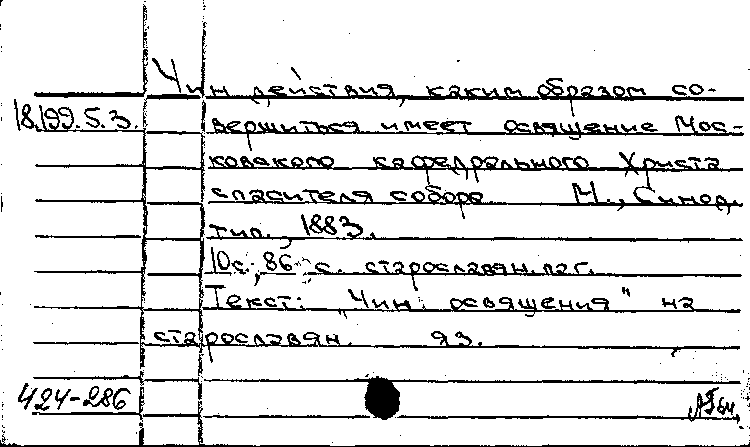 Чин действия, каким образом со-
18.199.5.3. вершиться имеет освящение Мос-
ковского кафедрального Христа
спасителя собора М., Синод.
тип., 1883.
10с., 86 с. старославян. паг.
Текст: "Чин освящения" на
старославян. яз.
424-286